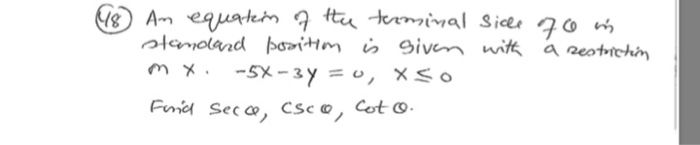 (48) An equation of the terminal side of θ in
standard position is given with a restriction
on x. -5x-3y = 0, x ≤ 0
Find sec θ, csc θ, cot θ.